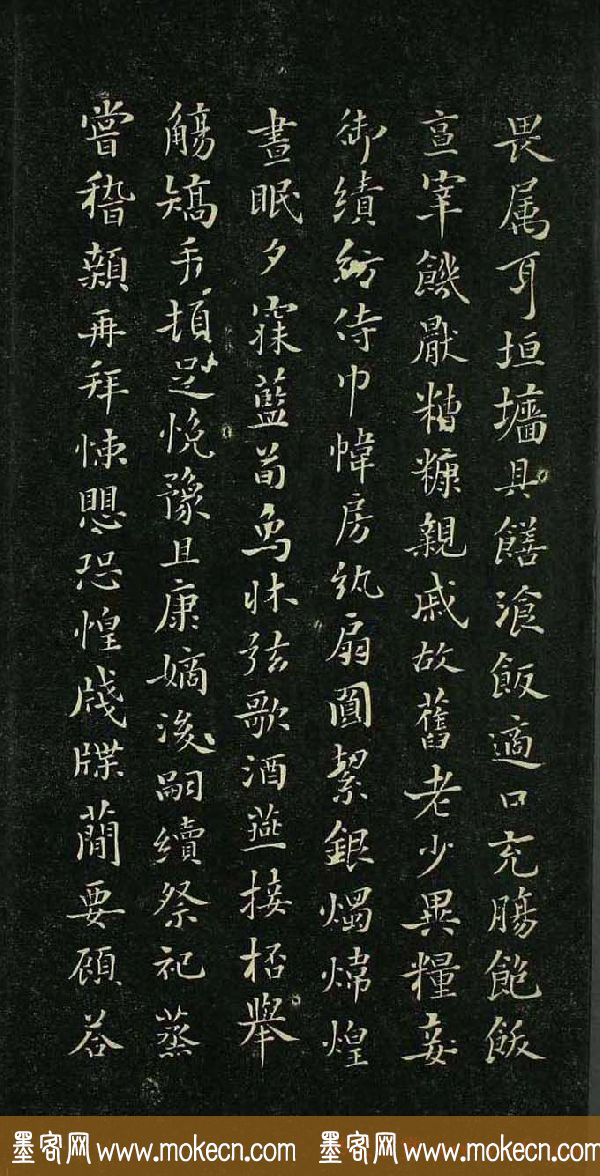 畏属耳垣墻具饍湌飯適口充腸飽飫
亨宰饑厭糟糠親戚故舊老少異糧妾
御績紡侍巾幃房紈扇圓絜銀燭煒煌
晝眠夕寐藍荀象牀弦歌酒燕接杯舉
觴矯手頓足悅豫且康嫡後嗣續祭祀蒸
嘗稽顙再拜悚懼恐惶牋牒蕳要顧荅
墨客网 www.mokecn.com 墨客网 www.mokecn.com